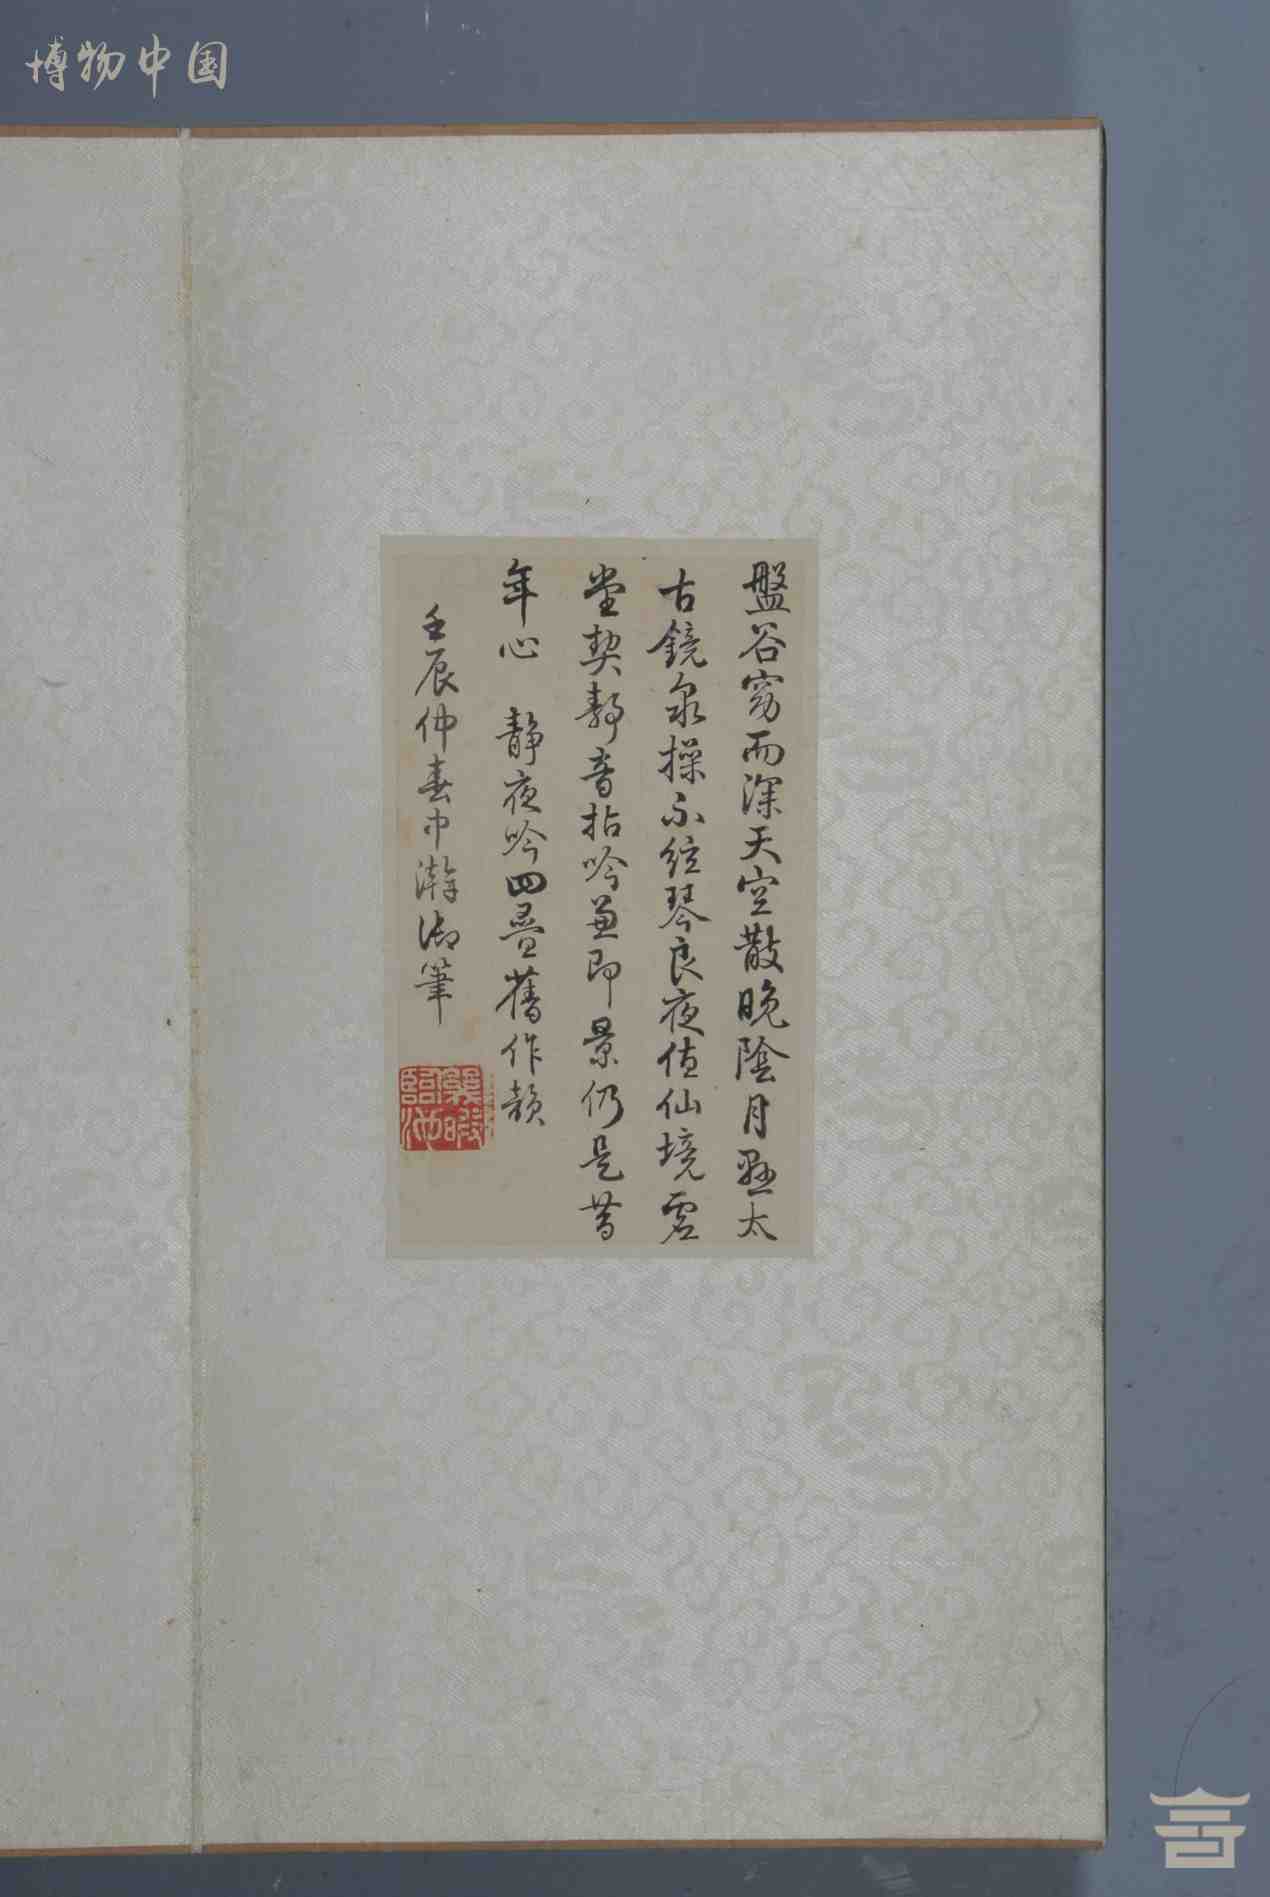 博物中国
盤谷窈而深天空散晚陰月懸太
古鏡泉操不絃琴良夜值仙境虛
堂契静音拈吟兼即景仍是昔
年心 静夜吟四疊舊作韻
壬辰仲春中澣御筆
幾暇臨池